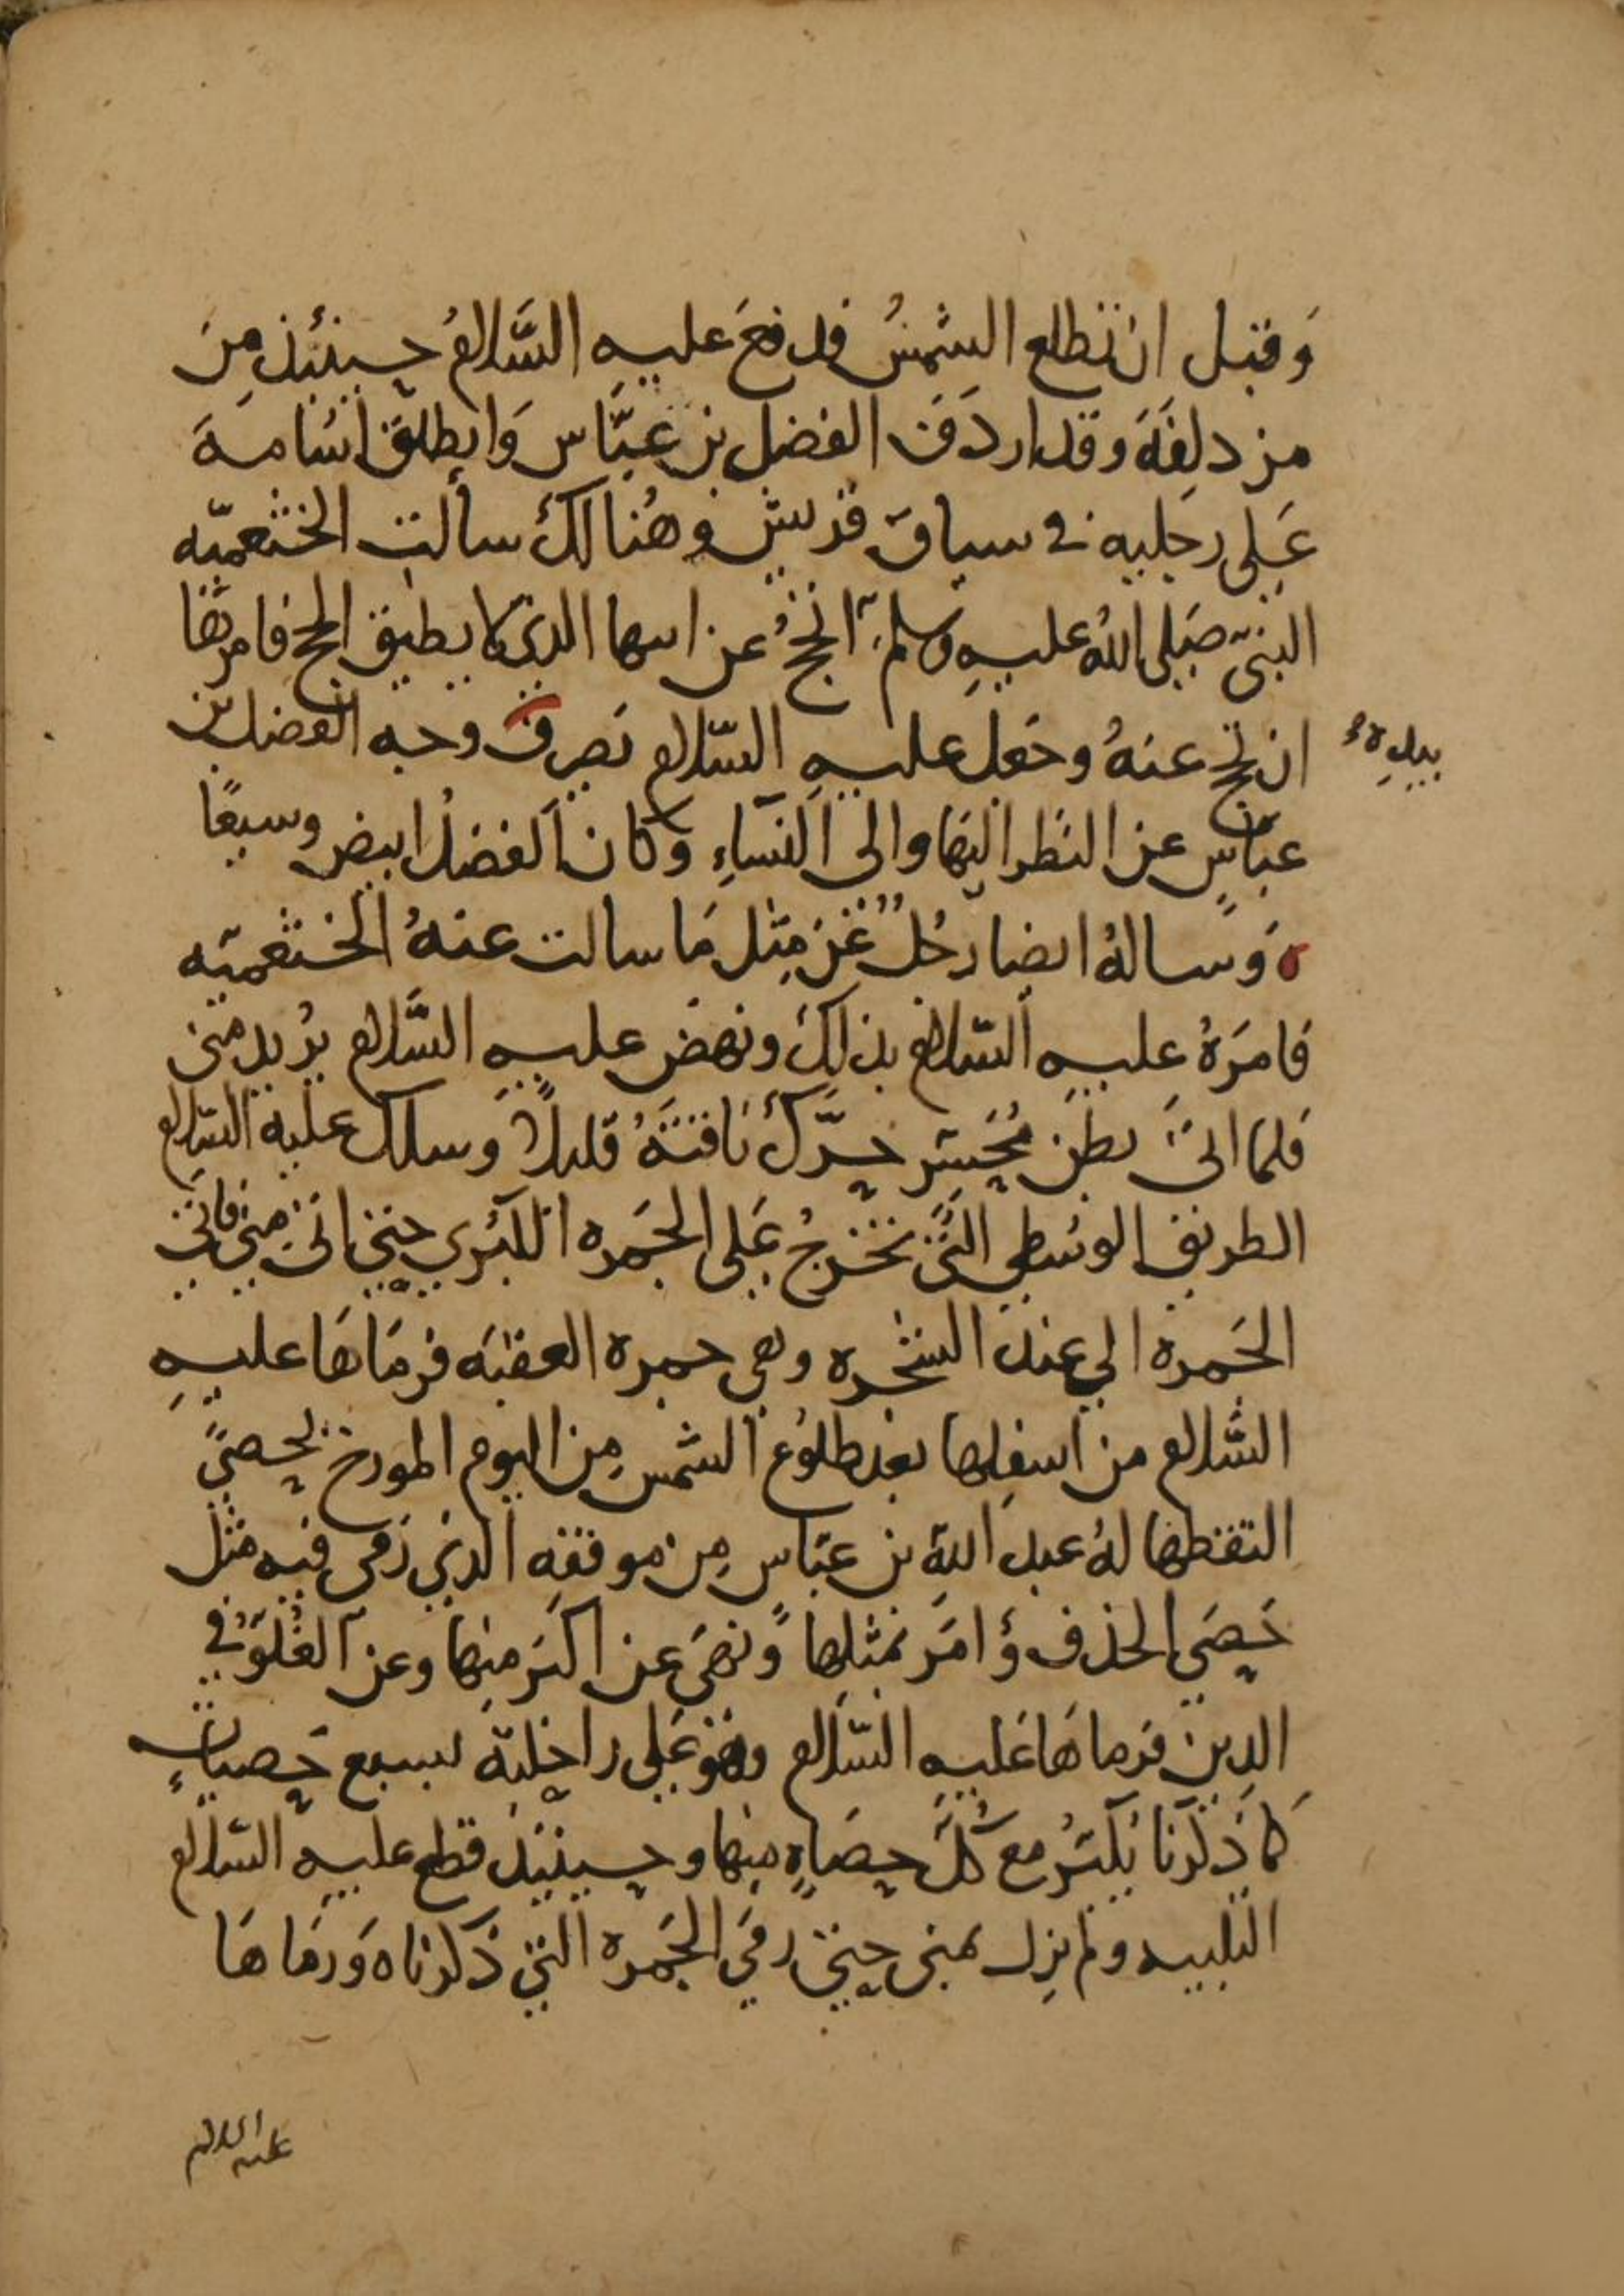 وَقبل ان تطلع الشمسُ فدفعَ عليه السَّلامُ حينئذ مِنَ
مزدلِفَة وقد اردَفَ الفضل بن عبَّاس وَانطلق اسَامـة
عَلى رجليه في سباق قريش وهُنالكَ سألت الخثعميّه
النبىّ صَلى اللهُ عليهِ وسلم آلحجُّ عن ابيها الذي لا يطيق الحج فامرَها
ان تحج عنهُ وجَعل عليهِ السّلام يَصرفُ وجه الفضل بن
بيدِهِ
عبّاسٍ عن النظر اليهَا والى النسَاءِ وَكان الفضلُ ابيض وسيمًا
ه وَسالهُ ايضا رجُلٌ عَن مِثل مَا سالت عنهُ الخثعميّه
فامَرَهُ عليهِ السّلام بذلكَ ونهضَ عليهِ السَّلام يُريد منى
فلما اتىَ بطن مُحَسّر حرَّكَ نَاقتَهُ قليلاً وسلك عليه السّلام
الطريق الوسُطى التي تخرجُ عَلى الجَمره الكبرى حتى اتى مِنى فاتى
الجَمره التي عند الشجره وهي جمرة العقبَه فرمَاهَا عليهِ
السَّلام من اسفلها بعد طلُوع الشمس مِن اليوم المورخ بحصىً
التقطها لهُ عبد اللهِ بن عبّاس مِن موقفهِ الذي رَمى فيه مثل
حَصَى الحذف وَامَر بمثلها وَنهىَ عن اكبَر منها وعن الغُلوِّ في
الدين فرماهَا عليهِ السّلام وهوَ عَلى راحلتهِ بسبع حَصياتٍ
كَما ذَكرنا يُكبّرُ معَ كُلّ حصَاةٍ منها وحينئذ قطع عليهِ السّلام
التلبيه ولم يزل بمنى حتى رمَى الجَمره التي ذكرناه وَرمَاهَا
عليه السلام